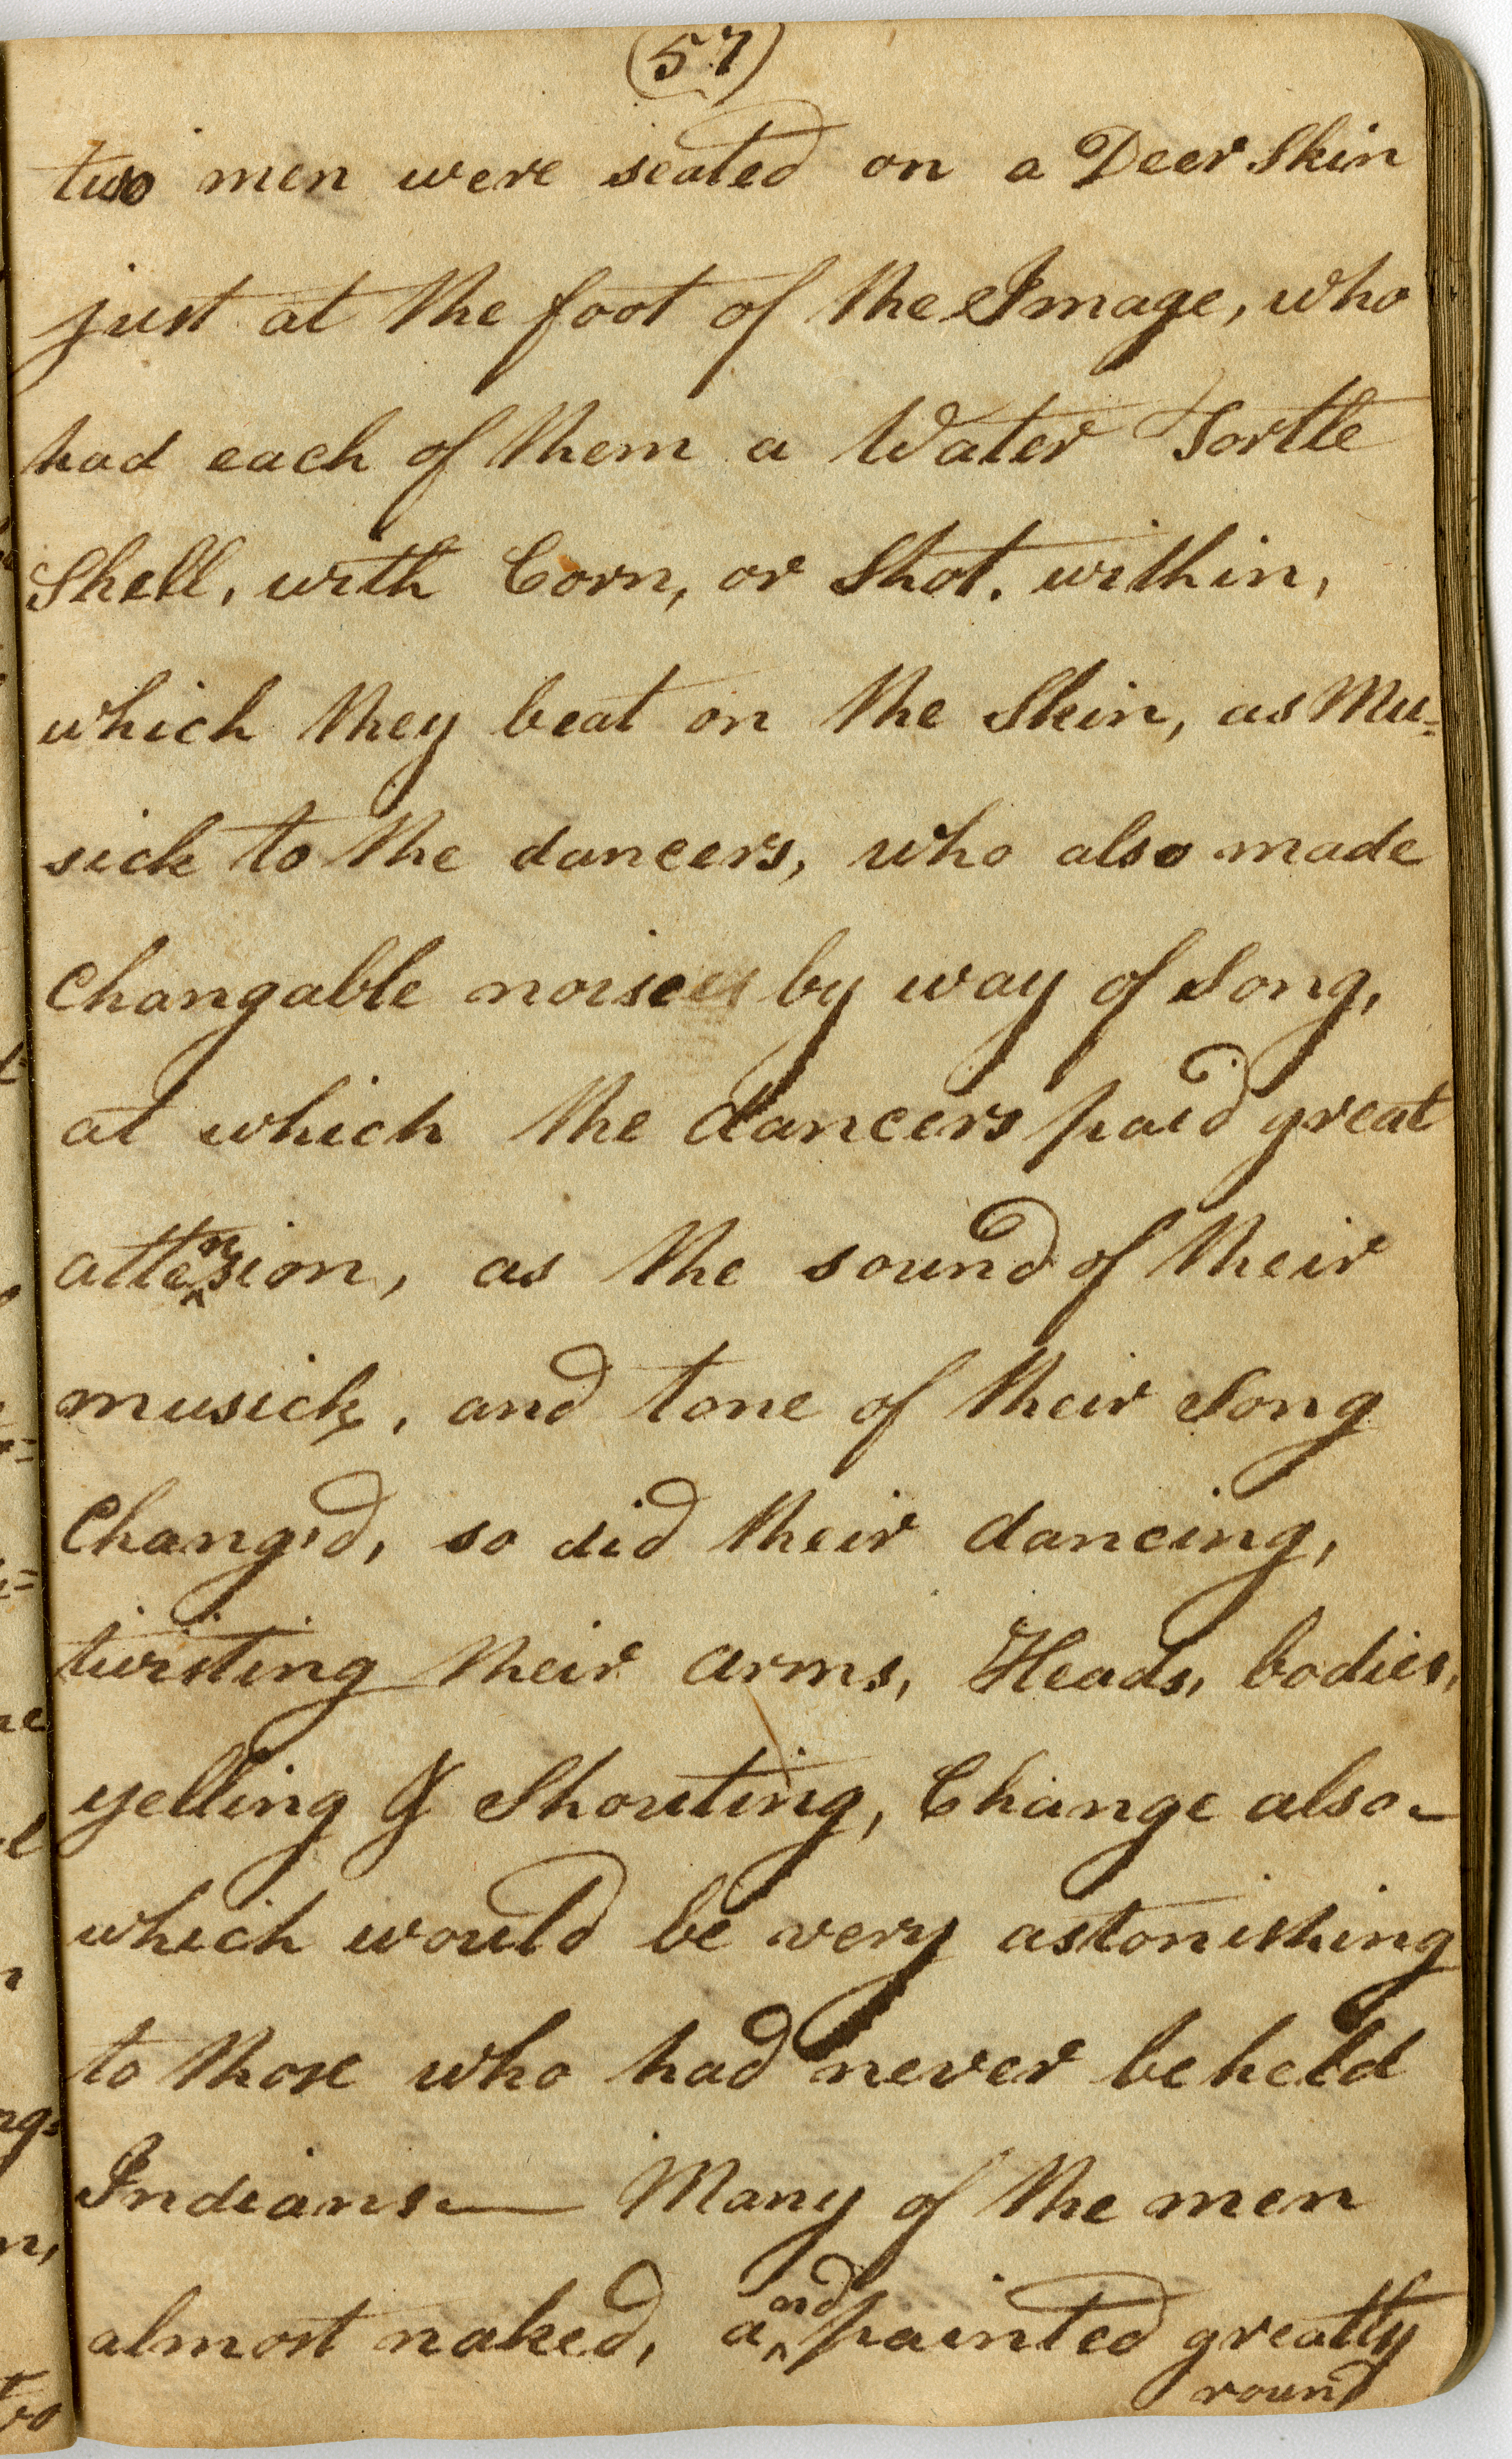 (57)
two men were seated on a Deer Skin
just at the foot of the Image, who
had each of them a Water Tortle
Shell, with Corn, or Shot, within,
which they beat on the Skin, as Mu=
sick to the dancers, who also made
Changable noises by way of Song,
at which the dancers paid great
attension, as the sound of their
musick, and tone of their Song
Chang'd, so did their dancing,
twisting their arms, Heads, bodies,
yelling & Shouting, Change also—
which would be very astonishing
to those who had never beheld
Indians — Many of the men
almost naked, and painted greatly
round